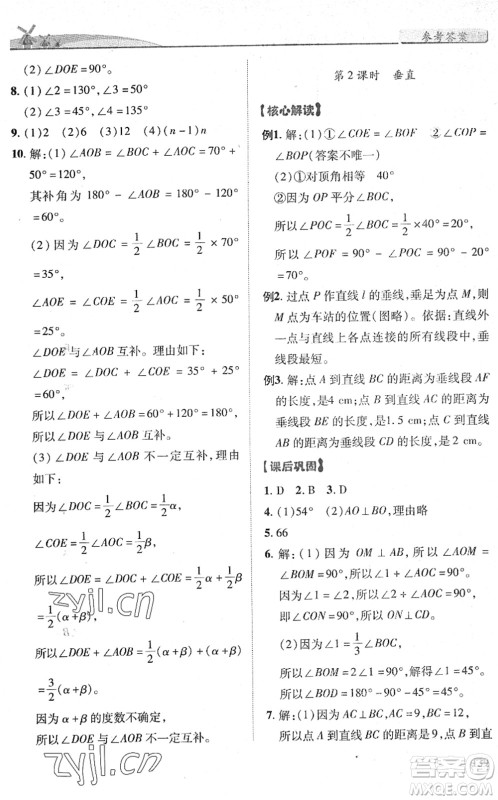 参考答案
(2)∠DOE=90°.
8. (1)∠2=130°,∠3=50°
(2)∠3=45°,∠2=135°
9. (1)2 (2)6 (3)12 (4)(n-1)n
10. 解:(1)∠AOB=∠BOC+∠AOC=70°+
50°=120°,
其补角为 180°-∠AOB=180°-120°
=60°.
(2)因为∠DOC=1/2∠BOC=1/2×70°
=35°,
∠AOE=∠COE=1/2∠AOC=1/2×50°
=25°.
∠DOE与∠AOB互补.理由如下:
因为∠DOE=∠DOC+∠COE=35°+25°
=60°.
所以∠DOE+∠AOB=60°+120°=180°,
所以∠DOE与∠AOB互补.
(3)∠DOE与∠AOB不一定互补,理由
如下:
因为∠DOC=1/2∠BOC=1/2α,
∠COE=1/2∠AOC=1/2β,
所以∠DOE=∠DOC+∠COE=1/2α+1/2β
=1/2(α+β),
所以∠DOE+∠AOB=1/2(α+β)+(α+β)
=3/2(α+β),
因为α+β的度数不确定,
所以∠DOE与∠AOB不一定互补.
第2课时 垂直
【核心解读】
例1. 解:(1)①∠COE=∠BOF ②∠COP=
∠BOP(答案不唯一)
(2)①对顶角相等
②因为OP平分∠BOC,
所以∠POC=1/2∠BOC=1/2×40°=20°.
所以∠POF=90°-∠POC=90°-20°
=70°.
例2. 过点P作直线l的垂线,垂足为点M,则点
M为车站的位置(图略).依据:直线外
一点与直线上各点连接的所有线段中,垂
线段最短.
例3. 解:点A到直线BC的距离为垂线段AF
的长度,是4 cm;点B到直线AC的距离
为垂线段BE的长度,是1.5 cm;点C到直线
AB的距离为垂线段CD的长度,是2 cm.
【课后巩固】
1. D 2. B 3. D
4. (1)54° (2)AO⊥BO,理由略
5. 66
6. 解:(1)因为OM⊥AB,所以∠AOM=
∠BOM=90°,所以∠1+∠AOC=90°.
因为∠1=∠2,所以∠2+∠AOC=90°,
即∠CON=90°,所以ON⊥CD.
(2)因为∠1=1/3∠BOC,
所以∠BOM=2∠1=90°,解得∠1=45°,
所以∠BOD=90°-45°=45°.
7. 解:(1)因为AC⊥BC,AC=9,
所以点A到直线BC的距离是9,点B到直
zyjl.cn
zyjl.cn
答案圈